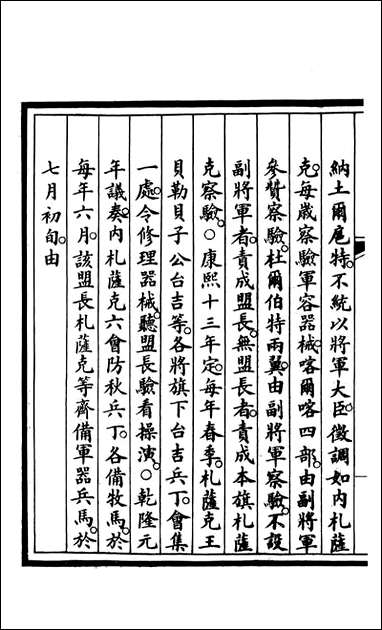 納土爾扈特。不統以將軍大臣。徵調如内札薩
克。每歲察驗軍容器械。喀爾喀四部。由副將軍
參贊察驗。杜爾伯特兩翼。由副將軍察驗。不設
副將軍者。責成盟長。無盟長者。責成本旗札薩
克察驗。○康熙十三年定。每年春季。札薩克王
貝勒貝子公台吉等。各將旗下台吉兵丁。會集
一處。令修理器械。聽盟長驗看操演。○乾隆元
年議奏。内札薩克六會防秋兵丁。各備牧馬。於
每年六月。該盟長札薩克等齊備軍器兵馬。於
七月初旬。由